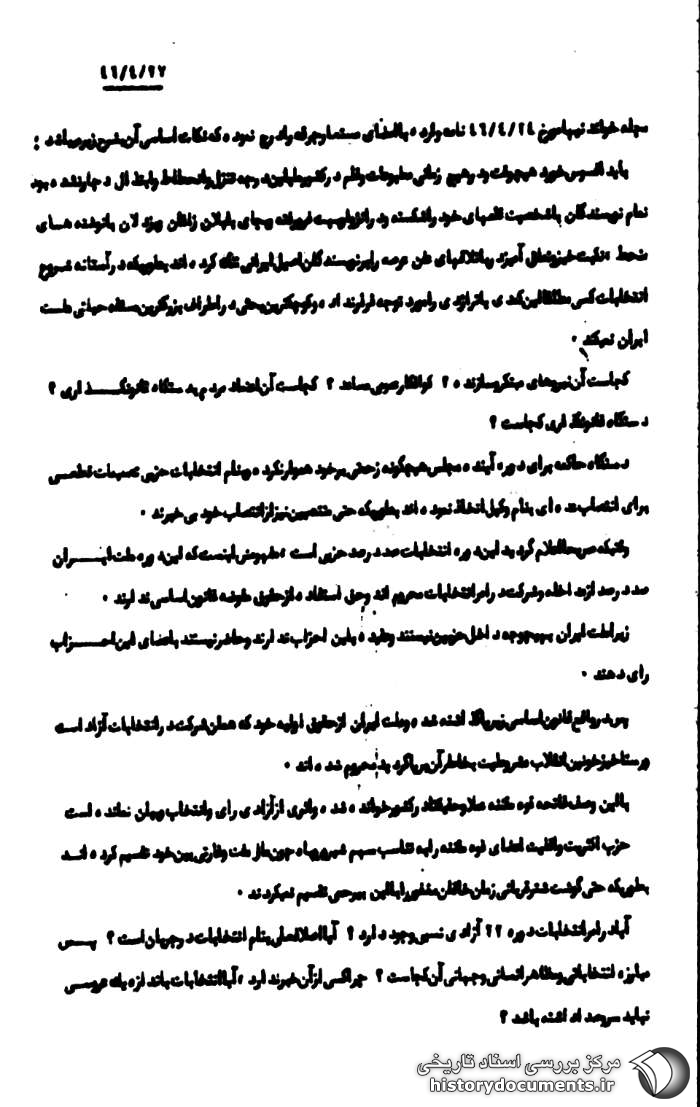 ۴۶/۴/۲۷
مجله خواندنیها مورخ ۴۶/۴/۲۴ نامه وارده با امضای مستعار جرقه را درج نموده که نکات اساسی آن بشرح زیر میباشد :
باید افسوس خورد هیچوقت و در هیچ زمانی مطبوعات و قلم در کشور ما باین درجه تنزل و انحطاط و ابتذال دچار نشده بود
تمام نویسندگان با شخصیت قلمهای خود را شکسته و در انزوا بسر و بجای بلبلان زاغان و با نوشته های
منحط نکبت خیز و تملق آمیز و عرصه را بر نویسندگان اصیل ایرانی تنگ کرده اند بطوریکه در آستانه شروع
انتخابات کسی مطلقا این کمدی یا تراژدی را مورد توجه قرار نداده و کوچکترین بحثی در اطراف بزرگترین مسئله حیاتی ملت
ایران نمیکند .
کجاست آن نیروهای مبتکر و سازنده ؟ کو افکار عمومی مساعد ؟ کجاست آن اعتماد مردم به دستگاه قانونگذاری ؟
دستگاه قانونگذاری کجاست ؟
دستگاه حاکمه برای دوره آینده مجلس هیچگونه زحمتی بر خود هموار نکرده و بنام انتخابات حزبی تصمیمات قطعی
برای انتصاب عده ای بنام وکیل اتخاذ نموده اند بطوریکه حتی منتصبین نیز از انتصاب خود بی خبرند .
وقتیکه صریحا اعلام گردید این دوره انتخابات صد در صد حزبی است مفهومش اینست که این دوره ملت ایران
صد در صد از مداخله و شرکت در امر انتخابات محروم اند و حق استفاده از حقوق حقه قانون اساسی ندارند .
زیرا ملت ایران بهیچوجه داخل حزبین نیستند و عقیده باین احزاب ندارند و حاضر نیستند باعضای این احزاب
رای دهند .
پس در واقع قانون اساسی زیر پا گذاشته شده و ملت ایران از حقوق اولیه خود که همان شرکت در انتخابات آزاد است
و رستاخیز خونین انقلاب مشروطیت بخاطر آن برپا گردید محروم شده اند .
با این وصف فاتحه قوه مقننه عملا و حقیقتا در کشور خوانده شده و اثری از آزادی رای و انتخاب و بیان نمانده است
حزب اکثریت و اقلیت اعضای قوه مقننه را به تناسب سهم خود چون مال غارتی بین خود تقسیم کرده اند
بطوریکه حتی گوشت شتر قربانی زمان خاقان مغفور را باین بیرحمی تقسیم نمیکردند .
آیا در امر انتخابات دوره ۲۲ آزادی نسبی وجود دارد ؟ آیا اصلا عملی بنام انتخابات در جریان است ؟ پس
مبارزه انتخاباتی و مظاهر انسانی و جهانی آن کجاست ؟ چرا کسی از آن خبر ندارد ، آیا انتخابات باندازه یک عروسی
نباید سر و صدا داشته باشد ؟
مرکز بررسی اسناد تاریخی
historydocuments.ir